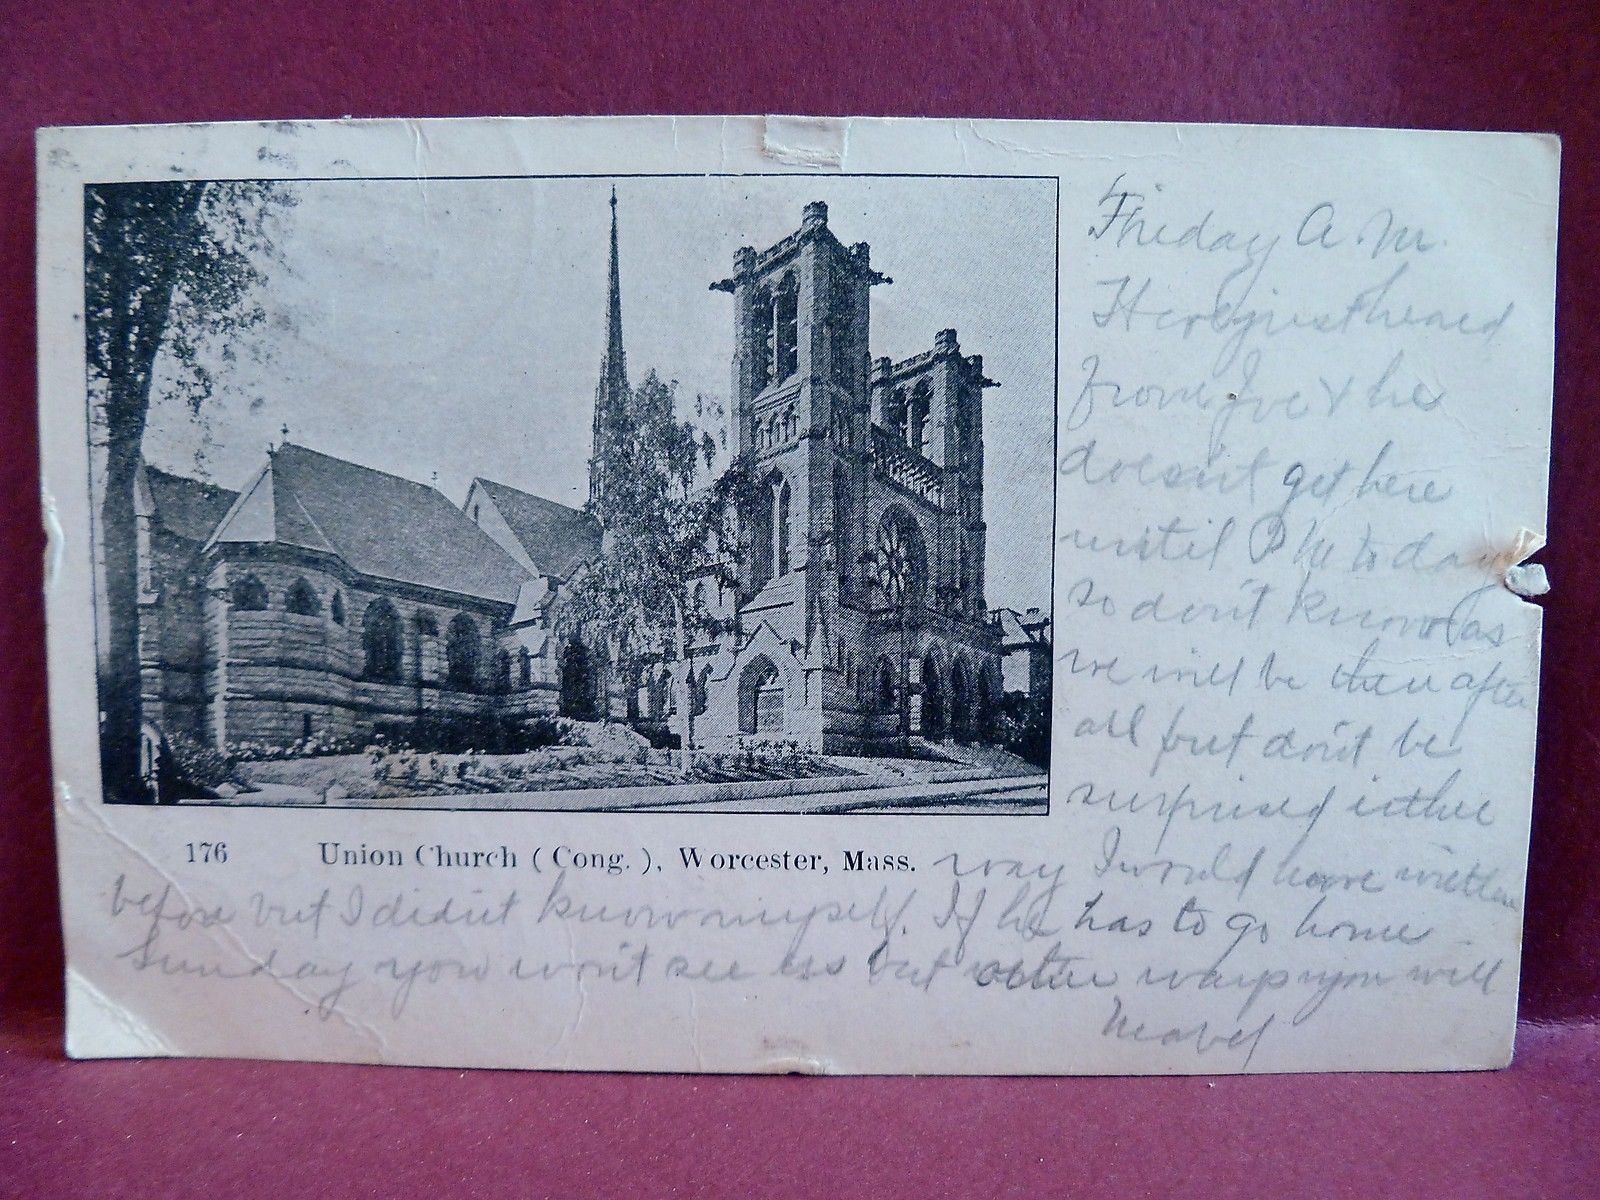 Friday A.M.
Have just heard
from Joe & he
doesn't get here
until P.M. to day
so don't know as
we will be then after
all but don't be
surprised either
176 Union Church (Cong.), Worcester, Mass.
way I would have written
before but I didn't know myself. If he has to go home
Sunday you won't see us but other ways you will
Mabel